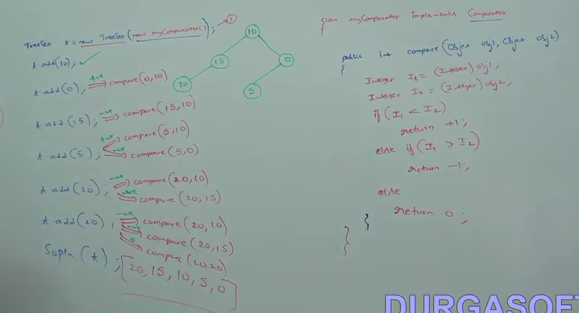 TreeSet t = new TreeSet(new myComparator()); → ①
t.add(10); ✓
t.add(0); +ve ⟹ compare(0,10)
t.add(15); -ve ⟹ compare(15,10)
t.add(5); +ve ⟹ compare(5,10)
-ve ⟹ compare(5,0)
t.add(20); -ve ⟹ compare(20,10)
-ve ⟹ compare(20,15)
t.add(20); -ve ⟹ compare(20,10)
-ve ⟹ compare(20,15)
0 ⟹ compare(20,20)
Sopln(t); [20,15,10,5,0]
10
15
0
20
5
class myComparator implements Comparator
{
public int compare(Object obj1, Object obj2)
{
Integer I1 = (Integer)obj1;
Integer I2 = (Integer)obj2;
if(I1 < I2)
return +1;
else if(I1 > I2)
return -1;
else
return 0;
}
}
DURGASOFT